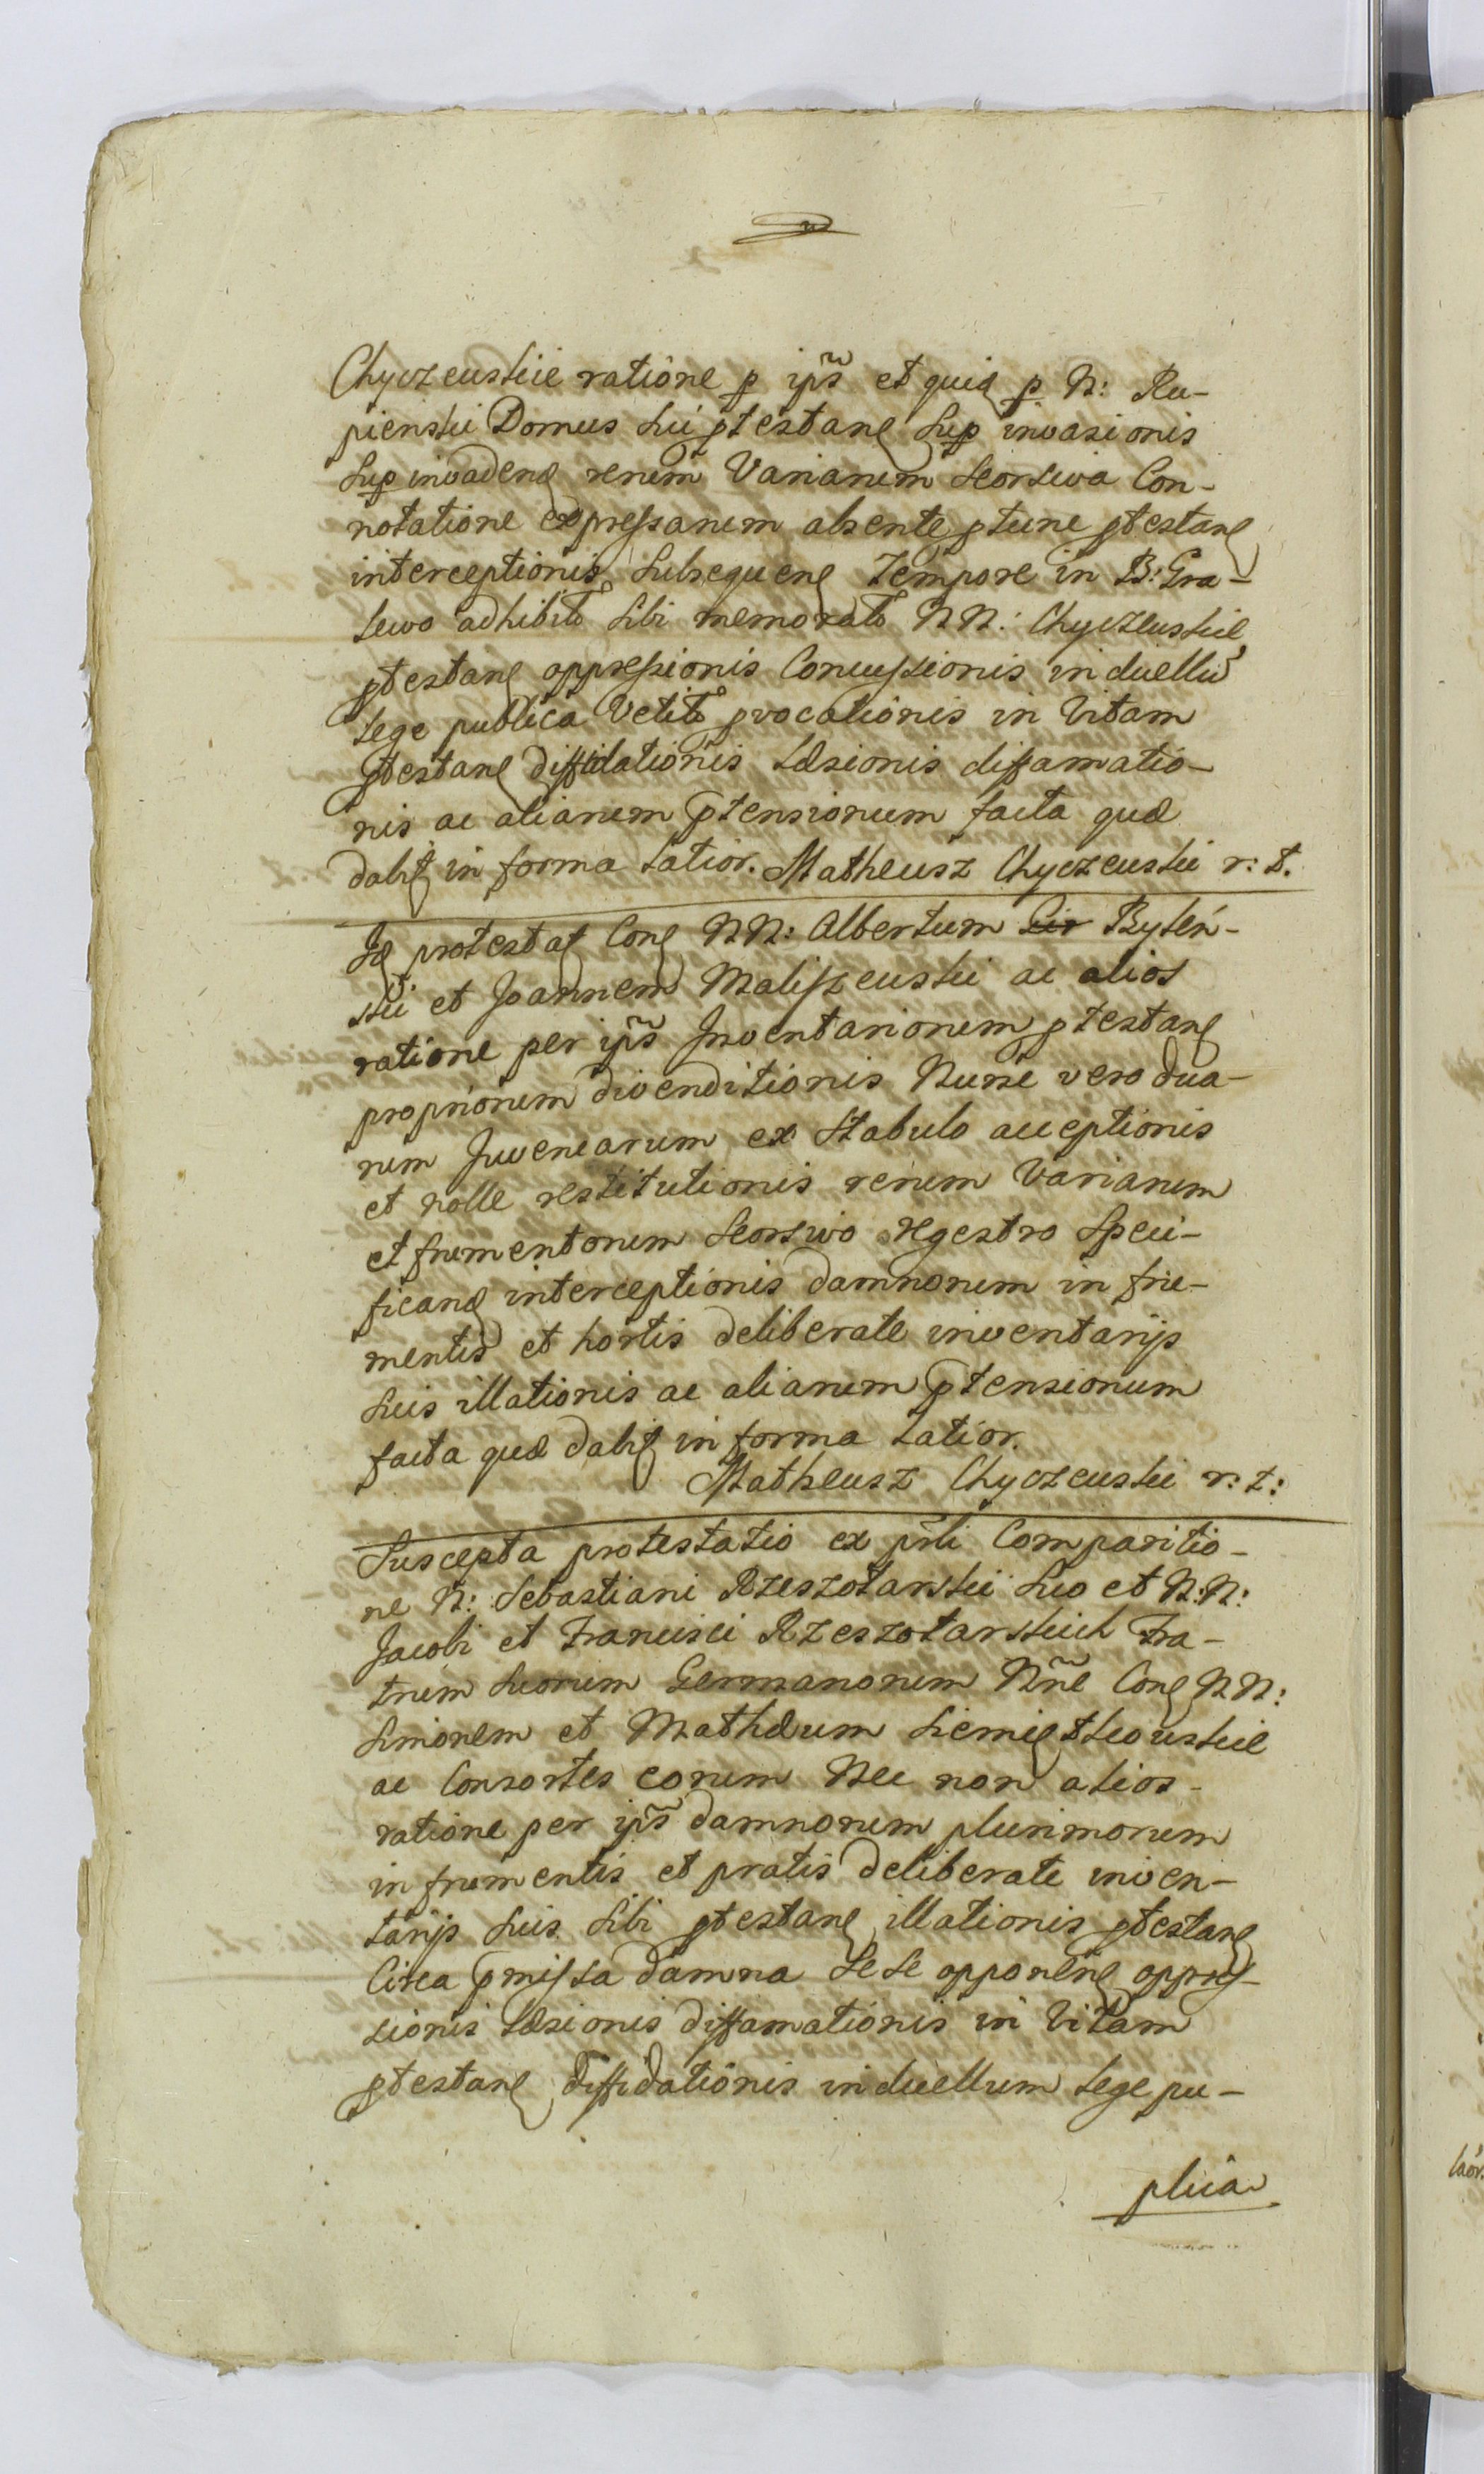 Chyczewskie ratione p ips et quid p N: Ru-
pienski Domus sui ptestan sup invasionis
sup invaden rerum Variarum seorsiva Con-
notatione expressarum absente ptunc ptestan
interceptionis subsequen Tempore in B: Gra-
iewo adhibito sibi memorato NN: Chyczewskie
ptestan oppressionis Concussionis in duellu
lege publica Vetito provocationis in Vitam
ptestan diffidationis læsionis diffamatio-
nis ac aliarum ptensionum facta quæ
dabit in forma latior. Matheusz Chyczewski r: t.
Id protestat Con NN: Albertum Byten-
ski et Joannem Maliszewski ac alios
ratione per ips Inventariorum ptestan
propriorum divenditionis Nunc vero dua-
rum Juvencarum ex stabulo acceptionis
et nolle restitutionis rerum Variarum
et frumentorum seorsivo regestro speci-
fican interceptionis damnorum in fru-
mentis et hortis deliberate inventarijs
suis illationis ac aliarum ptensionum
facta quæ dabit in forma latior.
Matheusz Chyczewski r: t:
Suscepta protestatio ex prli Comparitio-
ne N: Sebastiani Rzeszotarski suo et N:N:
Jacobi et Francisci Rzeszotarskich Fra-
trum suorum Germanorum Nne Con NN:
Simonem et Mathæum
ac Consortes eorum Nec non alios
ratione per ips damnorum plurimorum
in frumentis et pratis deliberate inven-
tarijs suis sibi ptestan illationis ptestan
Circa pmissa damna sese opponen oppres-
sionis læsionis diffamationis in Vitam
ptestan diffidationis in duellum lege pu-
plica